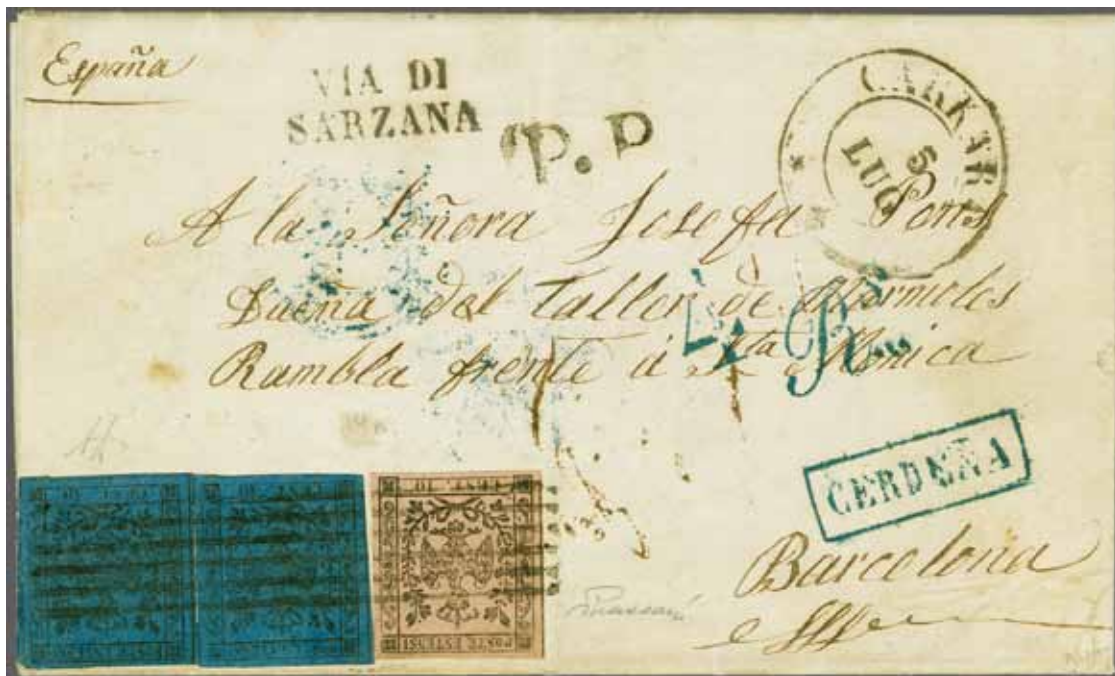 España
VIA DI
SARZANA
P. P
CARRARA
5
LUG
A la Señora Josefa Pons
Dueña del Taller de Marmoles
Rambla frente á Sta Mónica
4 R
CERDEÑA
Barcelona
CENT. 10
POSTE ESTENSI